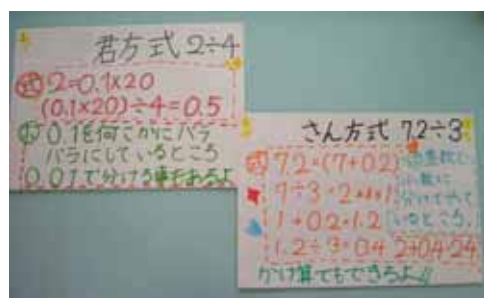 君方式 2÷4
式 2=0.1×20
(0.1×20)÷4=0.5
0.1を何こかにバラ
バラにしているところ
0.01で分ける事もあるよ
さん方式 7.2÷3
式 7.2=(7+0.2)
7÷3=2あまり1
1+0.2=1.2
1.2÷3=0.4 2+0.4=2.4
小数に
分けてやって
いるところ。
かけ算でもできるよ!!